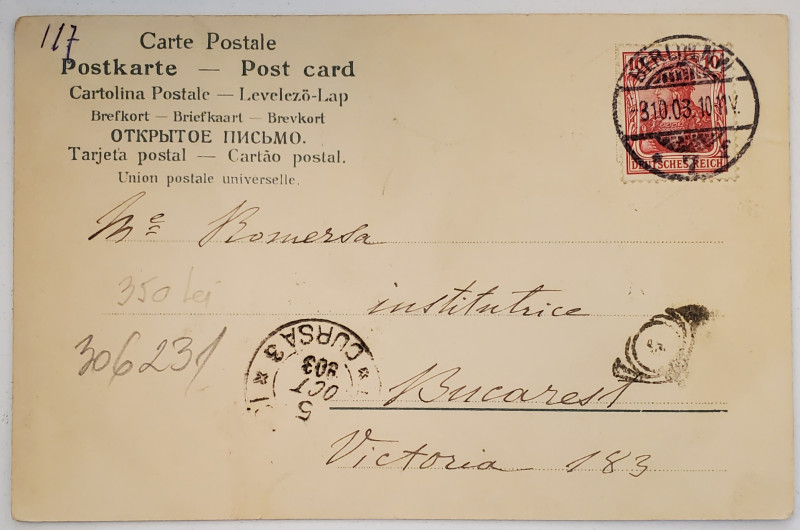 117
Carte Postale
Postkarte — Post card
Cartolina Postale — Levelező-Lap
Brefkort — Briefkaart — Brevkort
ОТКРЫТОЕ ПИСЬМО.
Tarjeta postal — Cartão postal.
Union postale universelle.
BERLIN N.W.
-3.10.03.10-11V.
10 10
DEUTSCHES REICH
Mᶜᵉ Romersa
350 lei
institutrice
306231
CURSA 3
5
OCT
903
Bucarest
Victoria 183